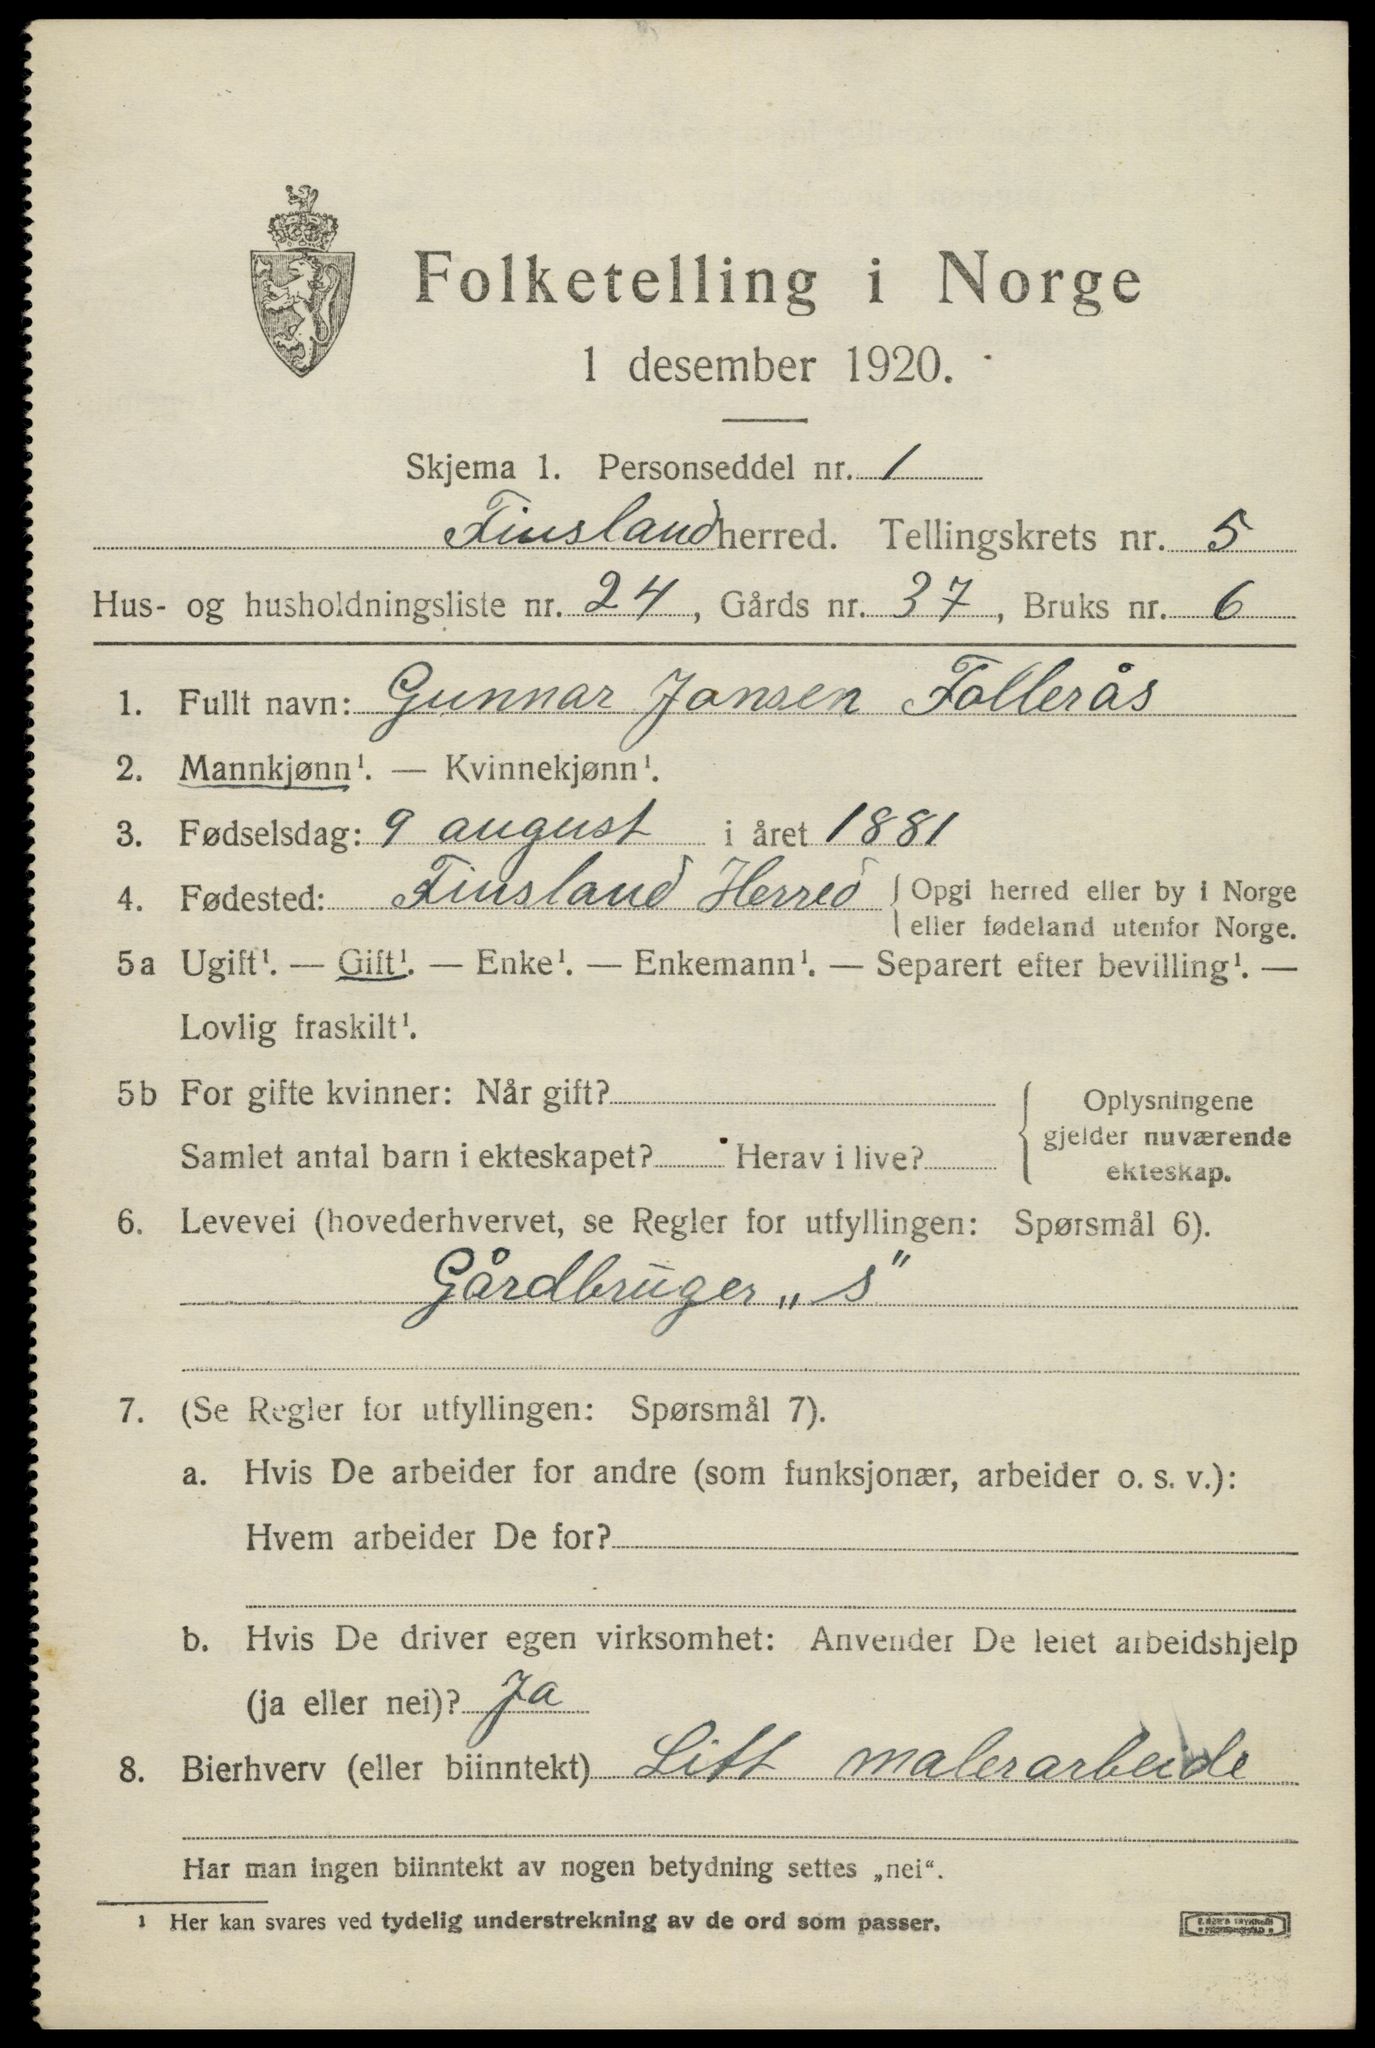 Folketelling i Norge
1 desember 1920.
Skjema 1. Personseddel nr. 1
Finsland herred. Tellingskrets nr. 5
Hus- og husholdningsliste nr. 24, Gårds nr. 37, Bruks nr. 6
1. Fullt navn: Gunnar Jansen Follerås
2. Mannkjønn¹. — Kvinnekjønn¹.
3. Fødselsdag: 9 august i året 1881
4. Fødested: Finsland Herred { Opgi herred eller by i Norge
eller fødeland utenfor Norge.
5a Ugift¹. — Gift¹. — Enke¹. — Enkemann¹. — Separert efter bevilling¹. —
Lovlig fraskilt¹.
5b For gifte kvinner: Når gift?
Samlet antal barn i ekteskapet? Herav i live?
{ Oplysningene
gjelder nuværende
ekteskap.
6. Levevei (hovederhvervet, se Regler for utfyllingen: Spørsmål 6).
Gårdbruger „s"
7. (Se Regler for utfyllingen: Spørsmål 7).
a. Hvis De arbeider for andre (som funksjonær, arbeider o. s. v.):
Hvem arbeider De for?
b. Hvis De driver egen virksomhet: Anvender De leiet arbeidshjelp
(ja eller nei)? Ja
8. Bierhverv (eller biinntekt) Litt malerarbeide
Har man ingen biinntekt av nogen betydning settes „nei“.
¹ Her kan svares ved tydelig understrekning av de ord som passer.